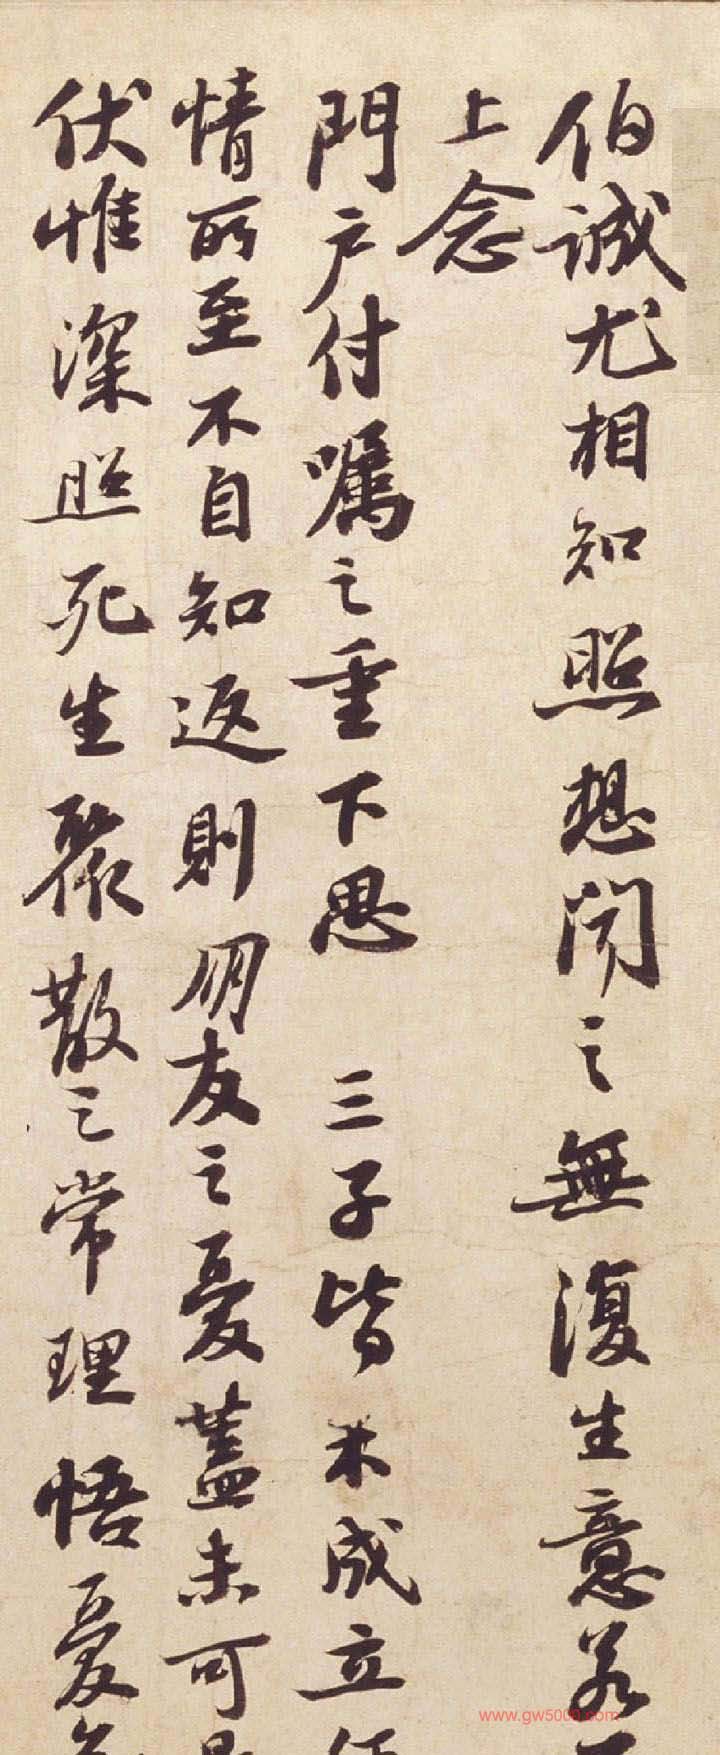 伯誠尤相知照想聞之無復生意若
上念
門戶付囑之重下思 三子皆未成立
情所至不自知返則朋友之憂蓋未可
伏惟深照死生聚散之常理悟憂
www.gw5000.com